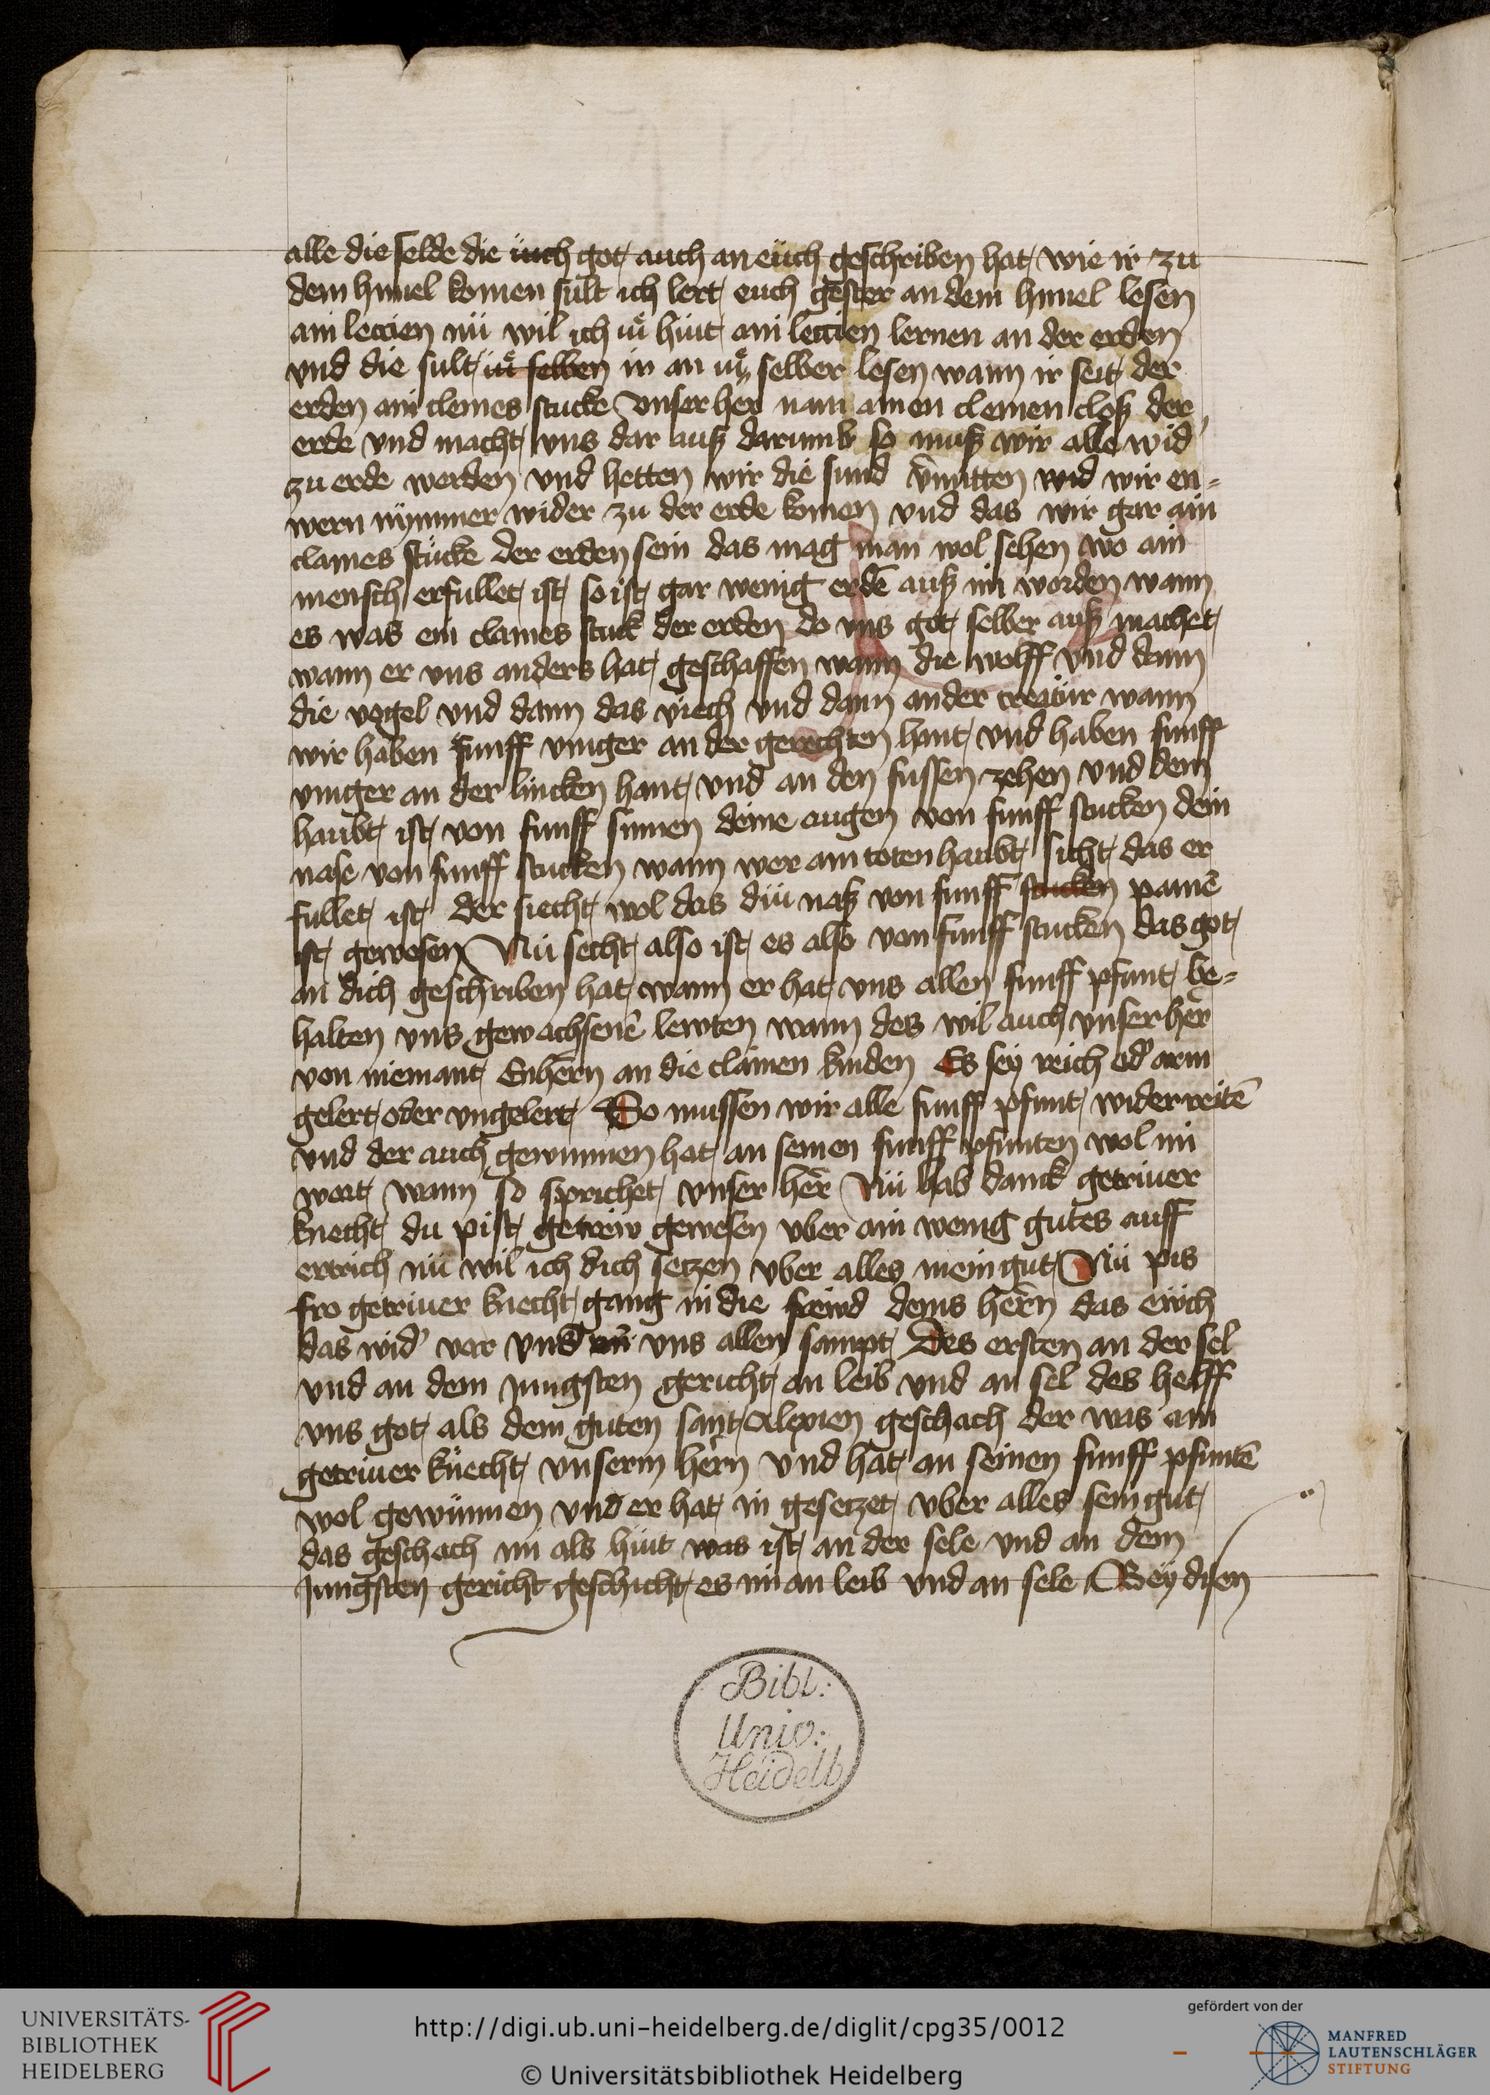 alle die selde die üuch got auch an eüch geschriben hat wie ir zu
dem himel komen sült ich lert euch gester an dem himel lesen
ain leccien nü wil ich iu̇ hiut ain leccien lernen an der erden
vnd die sult iu̇ selben ir an iu̇ selber lesen wann ir seit der
erden ain clemes stucke Vnser her nam ainen clemen cloß der
erde vnd macht vns dar auß darumb so muß wir alle wid'
zu erde werden vnd hetten wir die sund v̄mitten wid wir en-
wern nÿmmer wider zu der erde komen vnd das wir gar ain
claines stücke der erden sein das mag man wol sehen wo ain
mensch erfullet ist so ist gar wenig erdē auß im worden wann
es was ein claines stuck der erden do vns got selber auß machet
wann er vns anders hat geschaffen wann die wolff vnd dann
die vogel vnd dann das viech vnd dann ander creatür wann
wir haben funff vinger an der gerechten hant vnd haben funff
vinger an der lincken hant vnd an den fussen zehen vnd dem
haubt ist von funff sinnen deine augen von funff stucken dein
nase von funff stucken wann wer ain toten haubt sicht das er
fullet ist der siecht wol das diu naß von funff stucken painē
ist gewesen Nü secht also ist es also von funff stucken das got
an dich geschriben hat wann er hat vns allen funff pfunt be-
halten vns gewachsenē lewten wann des wil auch vnser her
von niemant Enbern an die clainen kinden Es sey reich od' arm
gelert oder vngelert So mussen wir alle funff pfunt widerreitē
vnd der auch gewunnen hat an seinen funff pfunten wol im
wart wann so sprichet vnser her Nü hab danck getriuer
knecht du pist getrew gewesen vber ain wenig gutes auff
ertrich nü wil ich dich setzen vber alles mein gut Nü pis
fro getriuer knecht gang in die frewd deins hern das eẅch
das wid' var vnd mir vns allen sampt Des ersten an der sel
vnd an dem jungsten gericht an leib vnd an sel des helff
vns got als dem guten sant Alexien geschach der was ain
getriuer knecht vnserm hern vnd hat an seinen funff pfuntē
wol gewunnen vnd er hat in gesetzet vber alles sein gut
das geschach im als hiut was ist an der sele vnd an dem
jungsten gericht geschicht es im an leib vnd an sele Bey disen
Bibl:
Univ:
Heidelb
UNIVERSITÄTS-
BIBLIOTHEK
HEIDELBERG
http://digi.ub.uni-heidelberg.de/diglit/cpg35/0012
© Universitätsbibliothek Heidelberg
gefördert von der
MANFRED
LAUTENSCHLÄGER
STIFTUNG